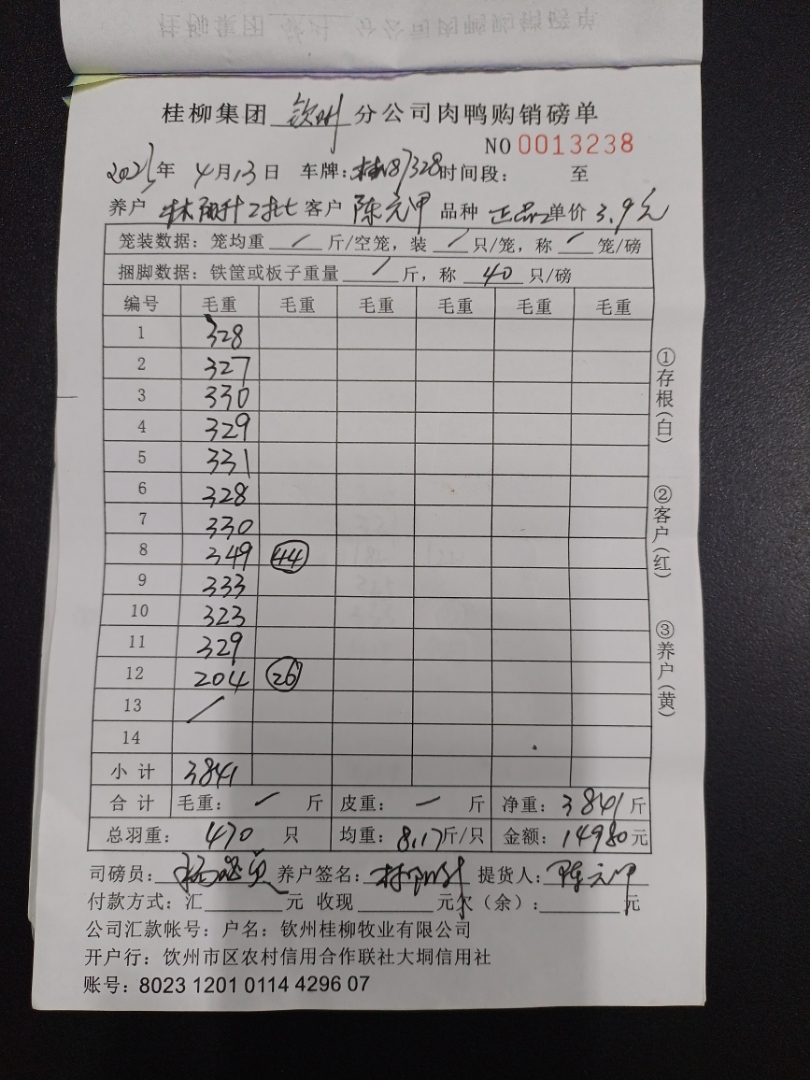 桂柳集团 钦州 分公司肉鸭购销磅单
NO 0013238
2025年 4月13日 车牌: 328 时间段: 至
养户 客户 陈元甲 品种 正品 单价 3.9元
笼装数据：笼均重 / 斤/空笼，装 / 只/笼，称 / 笼/磅
捆脚数据：铁筐或板子重量 / 斤，称 40 只/磅
编号 毛重 毛重 毛重 毛重 毛重 毛重
1 328
2 327
3 330
4 329
5 331
6 328
7 330
8 349 44
9 333
10 323
11 329
12 204 26
13 /
14
小计 3841
合计 毛重： 一 斤 皮重： 一 斤 净重：3841斤
总羽重： 470 只 均重：8.17斤/只 金额：14980元
司磅员： 养户签名： 提货人：陈元甲
付款方式：汇 元 收现 元欠（余）： 元
公司汇款帐号：户名：钦州桂柳牧业有限公司
开户行：钦州市区农村信用合作联社大垌信用社
账号：8023 1201 0114 4296 07
①存根(白)
②客户(红)
③养户(黄)